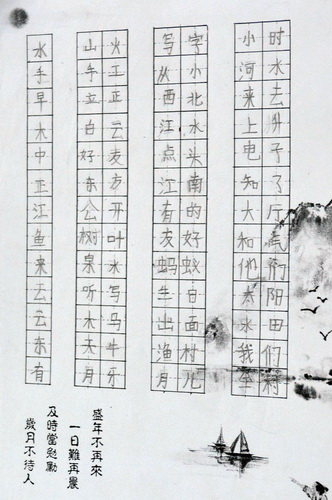 水手早木中正江鱼来云云东有
山手立白好东公树泉听木天月
火工正云友方开叶水写马牛乐
写从西江点江有友蚂生出渔月
字小北水头南的好蚁白面村儿
小河来上电知大和他太水我坐
时水去升子了厅亮们阳田们村
盛年不再來
一日難再晨
及時當勉勵
歲月不待人